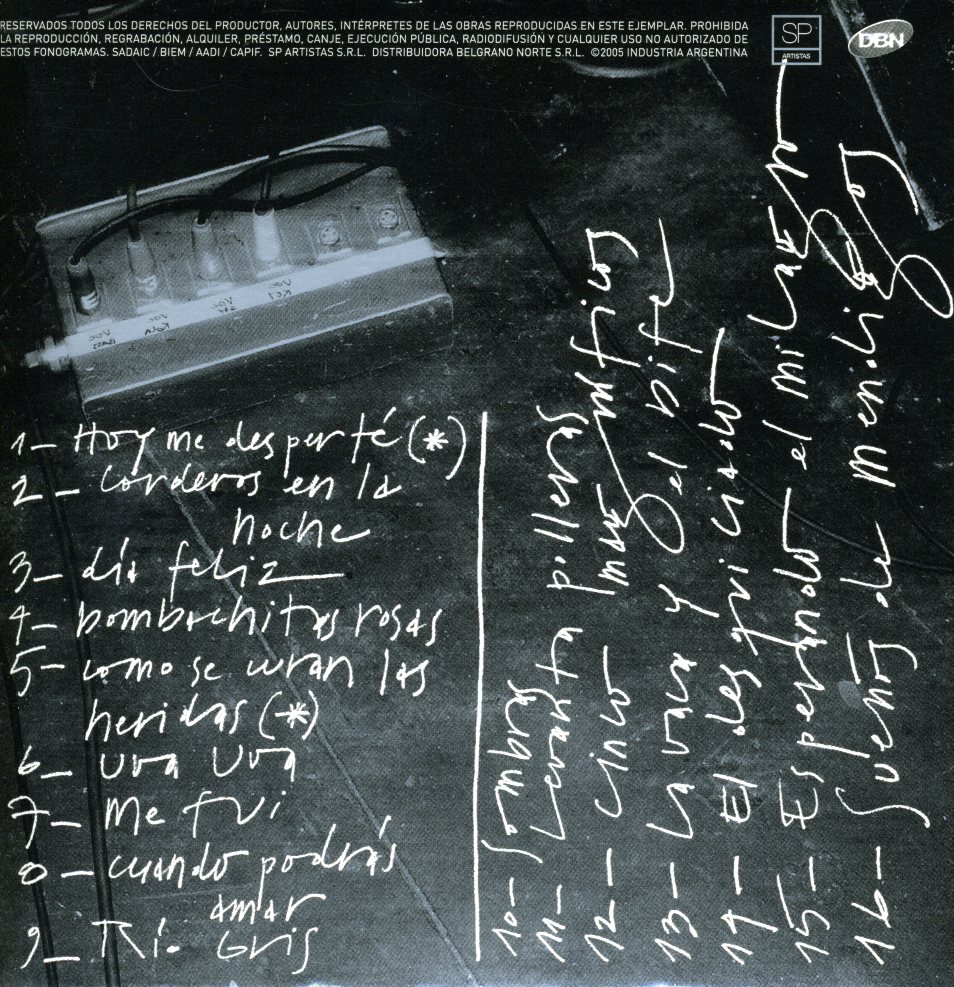 RESERVADOS TODOS LOS DERECHOS DEL PRODUCTOR, AUTORES, INTÉRPRETES DE LAS OBRAS REPRODUCIDAS EN ESTE EJEMPLAR. PROHIBIDA
LA REPRODUCCIÓN, REGRABACIÓN, ALQUILER, PRÉSTAMO, CANJE, EJECUCIÓN PÚBLICA, RADIODIFUSIÓN Y CUALQUIER USO NO AUTORIZADO DE
ESTOS FONOGRAMAS. SADAIC / BIEM / AADI / CAPIF. SP ARTISTAS S.R.L. DISTRIBUIDORA BELGRANO NORTE S.R.L. ©2005 INDUSTRIA ARGENTINA
SP
ARTISTAS
DBN
1- Hoy me desperté (*)
2- Corderos en la
noche
3- día feliz
4- bombachitas rosas
5- como se curan las
heridas (*)
6- uva uva
7- Me fui
8- cuando podrás
amar
9- Trí- Gris
10- Sombras
11- Levanta polleras
12- cinco magníficos
13- La vaca y el bife
14- El desquiciado
15- Esperando el milagro
16- Sueños de mendigos